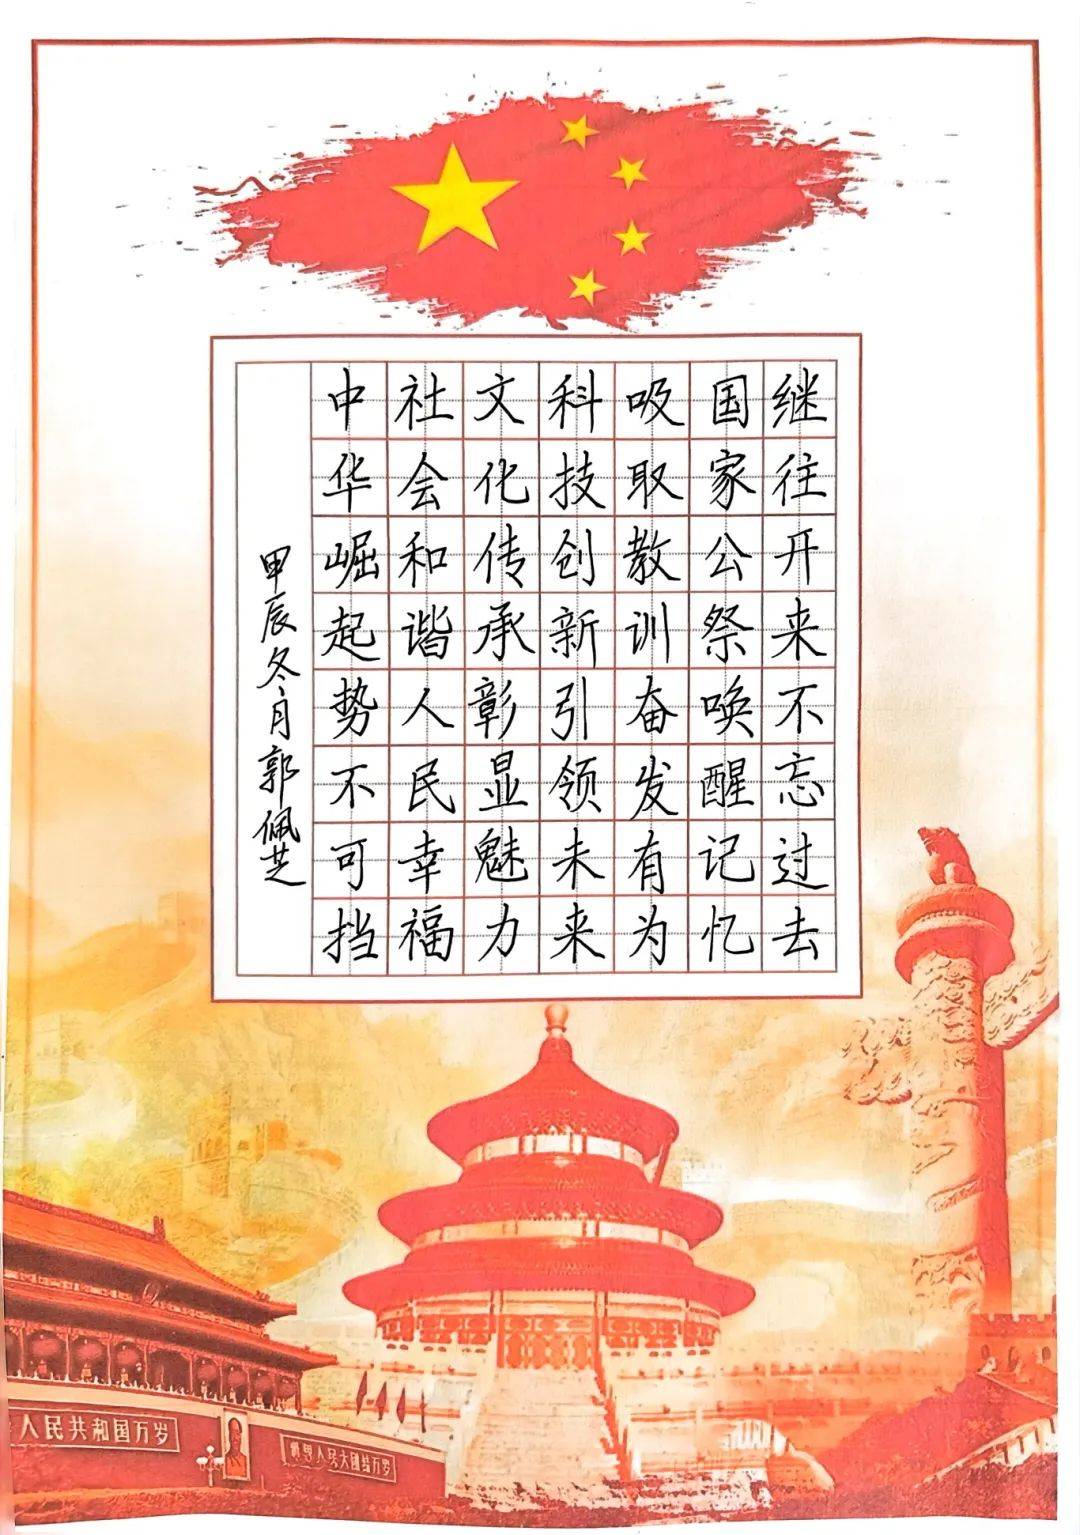 继往开来不忘过去
国家公祭唤醒记忆
吸取教训奋发有为
科技创新引领未来
文化传承彰显魅力
社会和谐人民幸福
中华崛起势不可挡
甲辰冬月郭佩芝
人民共和国万岁
世界人民大团结万岁